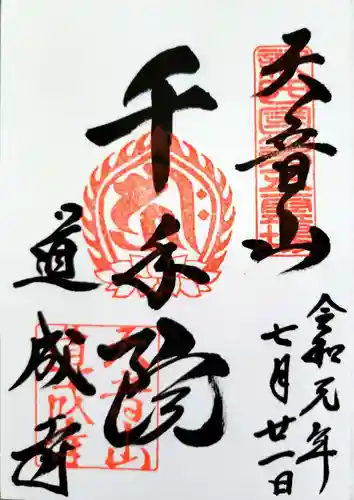 天音山
千手院
道成寺
令和元年
七月廿一日